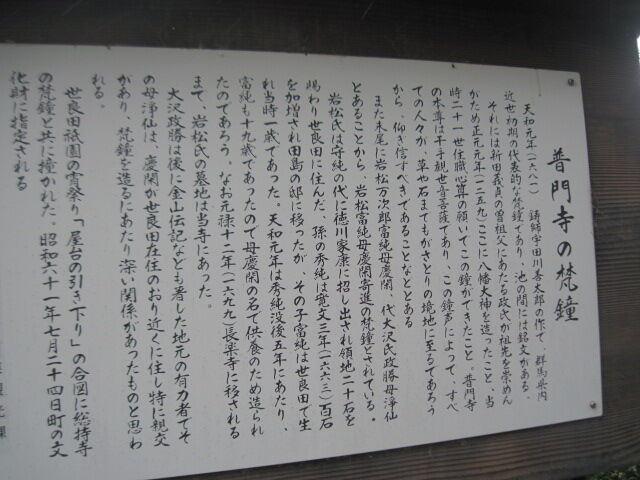 普門寺の梵鐘
天和元年(一六八一)鋳師宇田川善太郎の作で、群馬県内
近世初期の代表的な梵鐘であり、池の間には銘文がある。
それには新田義貞の曽祖父にあたる政氏が祖先を崇めん
がため正元元年(一二五九)ここに八幡大神を造ったこと、当
時二十一世住職心算の願いでこの鐘ができたこと。普門寺
の本尊は千手観世音菩薩であり、この鐘声によって、すべ
ての人々が、草や石までもがさとりの境地に至るであろう
から、仰ぎ信ずべきであることなどとある
また末尾に岩松万次郎富純母慶閑 代大沢氏政勝母浄仙
とあることから、岩松富純母慶閑寄進の梵鐘とされている。
岩松氏は守純の代に徳川家康に招し出され領地二十石を
賜わり世良田に住んだ。孫の秀純は寛文三年(一六六三)百石
を加増され田島の邸に移ったが、その子富純は世良田で生
れ当時一歳であった。天和元年は秀純没後五年にあたり、
富純も十九歳であったので母慶閑の名で供養のため造られ
たのであろう。なお元禄十二年(一六九九)長楽寺に移される
まで、岩松氏の墓地は当寺にあった。
大沢政勝は後に金山伝記なども著した地元の有力者でそ
の母浄仙は、慶閑が世良田在住のおり近くに住し特に親交
があり、梵鐘を造るにあたり深い関係があったものと思わ
れる。
世良田祇園の宵祭り「屋台の引き下り」の合図に総持寺
の梵鐘と共に撞かれた。昭和六十一年七月二十四日町の文
化財に指定される